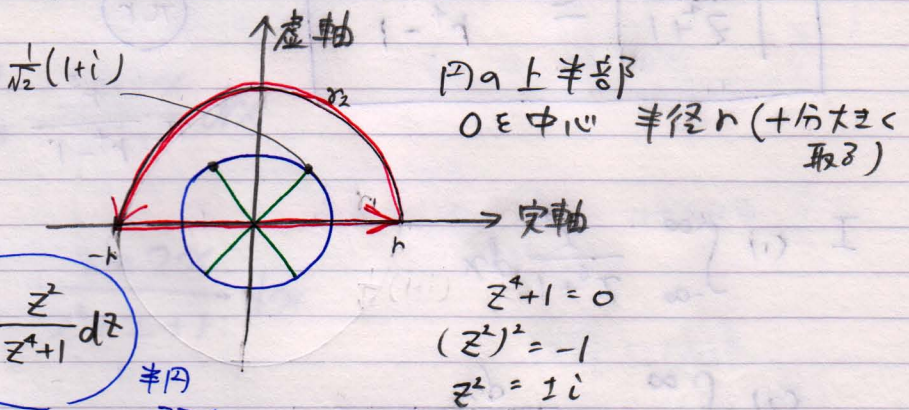 虚軸
1/√2 (1+i)
γ2
円の上半部
0を中心 半径r (十分大きく
取る)
γ1
-r
r
実軸
z²/(z⁴+1) dz
半円
z⁴+1=0
(z²)²=-1
z²=±i